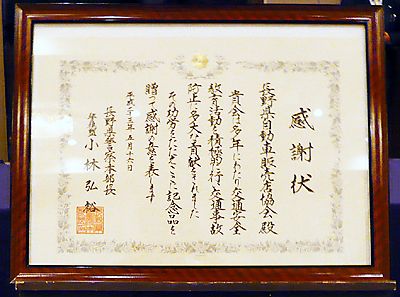 感謝状
長野県自動車販売店協会殿
貴会は多年にわたり交通安全
教育活動を積極的に行い交通事故
防止に多大な貢献をされました
その功労をたたえここに記念品を
贈って感謝の意を表します
平成二十三年五月十六日
長野県警察本部長
警視監 小林弘裕